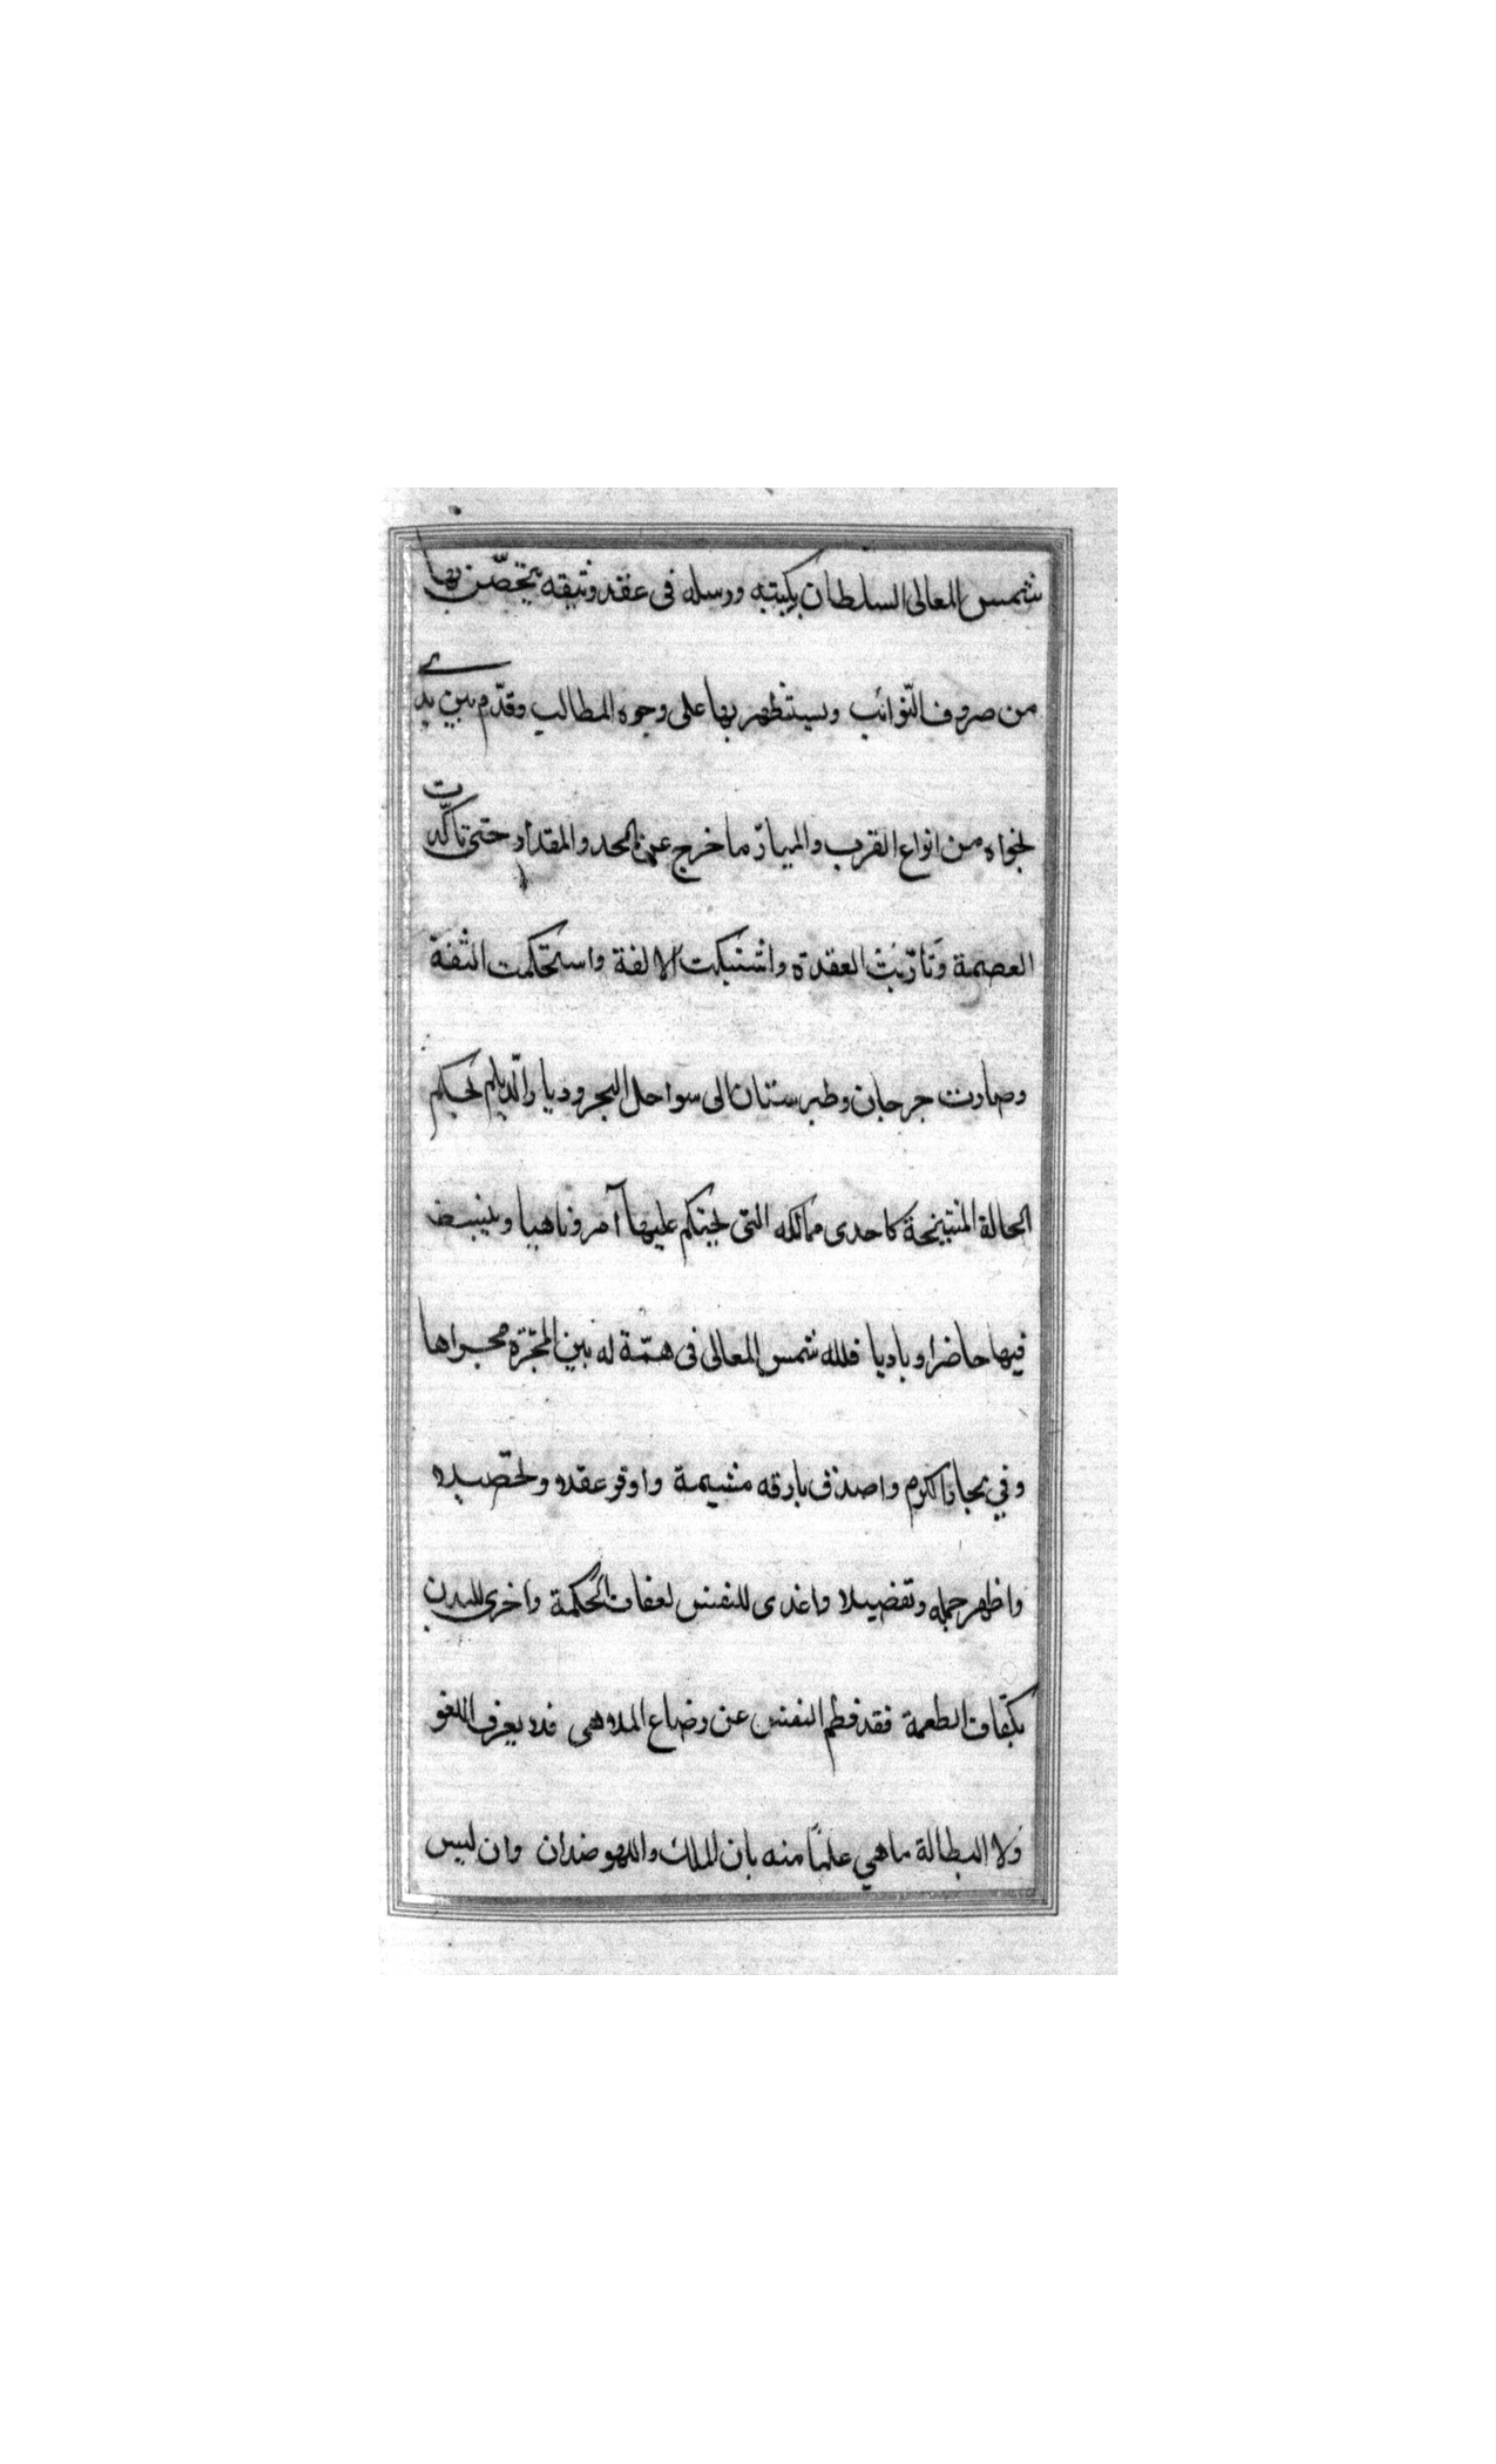 شمس المعالى السلطان بكتبه ورسله فى عقد وثيقه يتحصّن بها
من صروف النّوائب ويستظهر بها على وجوه المطالب وقدّم بين يدى
نجواه من انواع القرب والمبارّ ما خرج عن الحد والمقدار حتى تاكّدت
العصمة وتارّبت العقدة واشتبكت الالفة واستحكمت الثقة
وصارت جرجان وطبرستان الى سواحل البحر وديار الدّيلم بحكم
الحالة المنتيخة كاحدى ممالكه التى يحتكم عليها آمر وناهيا وينبسط
فيها حاضرا وباديا فلله شمس المعالى فى همّة له بين المجّرة مجراها
وفي مجار الكرم واصدق بارقه مشيمة واوفر عقده وتحصيلا
واظهر جمله وتفصيلا واغدى للنفس لعفات الحكمة واخرى للبدن
بكفاف الطعمة فقد فطم النفس عن رضاع الملاهى فلا يعرف اللغو
ولا البطالة ما هي علمًا منه بان الملك واللهو ضدان وان ليس